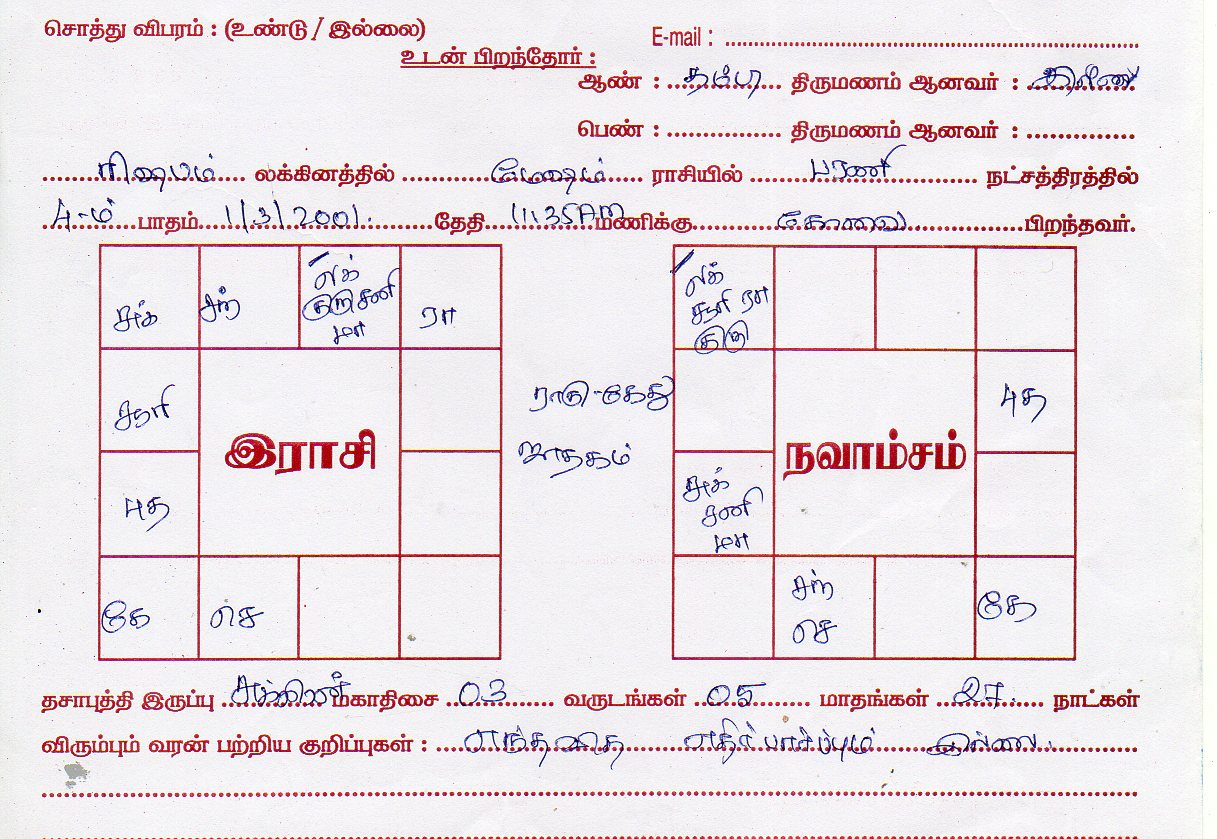 சொத்து விபரம் : (உண்டு / இல்லை)
E-mail :
உடன் பிறந்தோர் :
ஆண் : தம்பி திருமணம் ஆனவர் : இல்லை
பெண் : திருமணம் ஆனவர் :
ரிஷபம் லக்கினத்தில் மேஷம் ராசியில் பரணி நட்சத்திரத்தில்
4-ம் பாதம் 1/3/2001. தேதி 11.35AM மணிக்கு கோவை பிறந்தவர்.
சுக்
சந்
லக்
குரு சனி
மா
ரா
சூரி
புத
கே
செ
இராசி
ராகு-கேது
ஜாதகம்
லக்
சூரி ரா
குரு
புத
சுக்
சனி
மா
சந்
செ
கே
நவாம்சம்
தசாபுத்தி இருப்பு சுக்கிரன் மகாதிசை 03 வருடங்கள் 05 மாதங்கள் 27 நாட்கள்
விரும்பும் வரன் பற்றிய குறிப்புகள் : எந்தவித எதிர்பார்ப்பும் இல்லை.